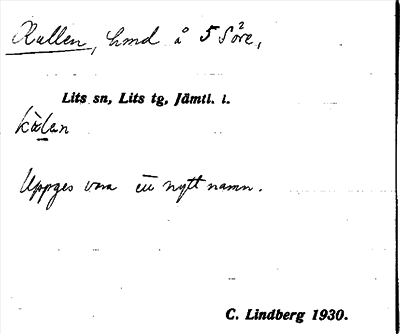 Kullen, hmd å 5 Söre,
Lits sn, Lits tg, Jämtl. l.
Uppges vara ett nytt namn.
C. Lindberg 1930.